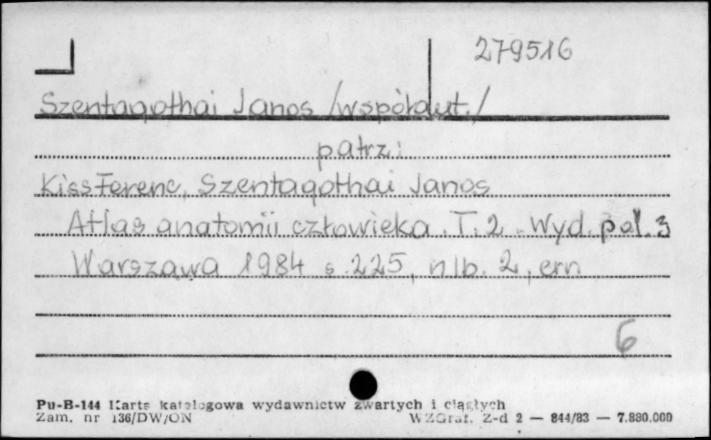 279516
Szentagothai Janos /współaut./
patrz:
Kiss Ferenc, Szentagothai Janos
Atlas anatomii człowieka. T. 2. Wyd. pol. 3
Warszawa 1984 s. 225, nlb. 2, ern
6
Pu-B-144 Karta katalogowa wydawnictw zwartych i ciągłych
Zam. nr 136/DW/ON WZGraf. Z-d 2 — 844/83 — 7.880.000